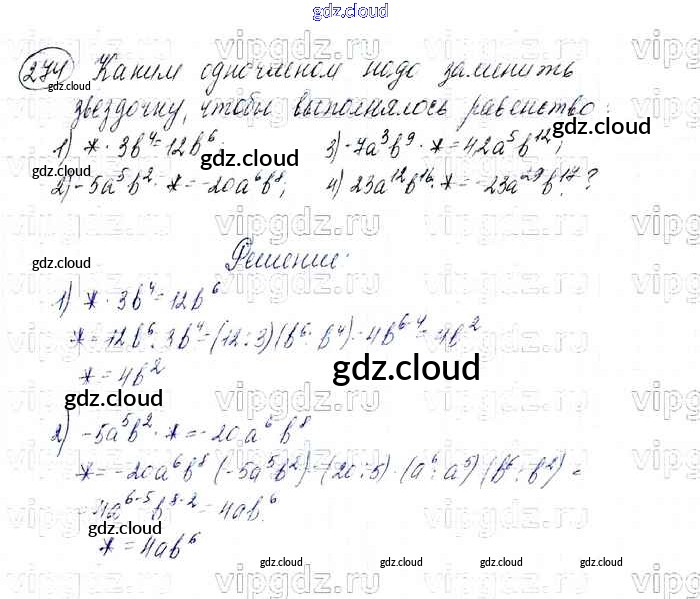 gdz.cloud
274 Каким одночленом надо заменить
звездочку, чтобы выполнялось равенство:
gdz.cloud
1) * · 3b⁴ = 12b⁶; 3) -7a³b⁹ · * = 42a⁵b¹²;
gdz.cloud
2) -5a⁵b² · * = -20a⁶b⁸; 4) 23a¹²b¹⁶ · * = -23a²⁹b¹⁷?
gdz.cloud gdz.cloud
Решение:
gdz.cloud
1) * · 3b⁴ = 12b⁶
* = 12b⁶ : 3b⁴ = (12:3)(b⁶ : b⁴) = 4b⁶⁻⁴ = 4b²
* = 4b²
gdz.cloud
2) -5a⁵b² · * = -20a⁶b⁸
* = -20a⁶b⁸ (-5a⁵b²) = (20:5) · (a⁶ : a⁵) (b⁸ : b²) =
= 4a⁶⁻⁵b⁸⁻² = 4ab⁶
gdz.cloud
* = 4ab⁶
gdz.cloud gdz.cloud gdz.cloud
vipgdz.ru vipgdz.ru vipgdz.ru